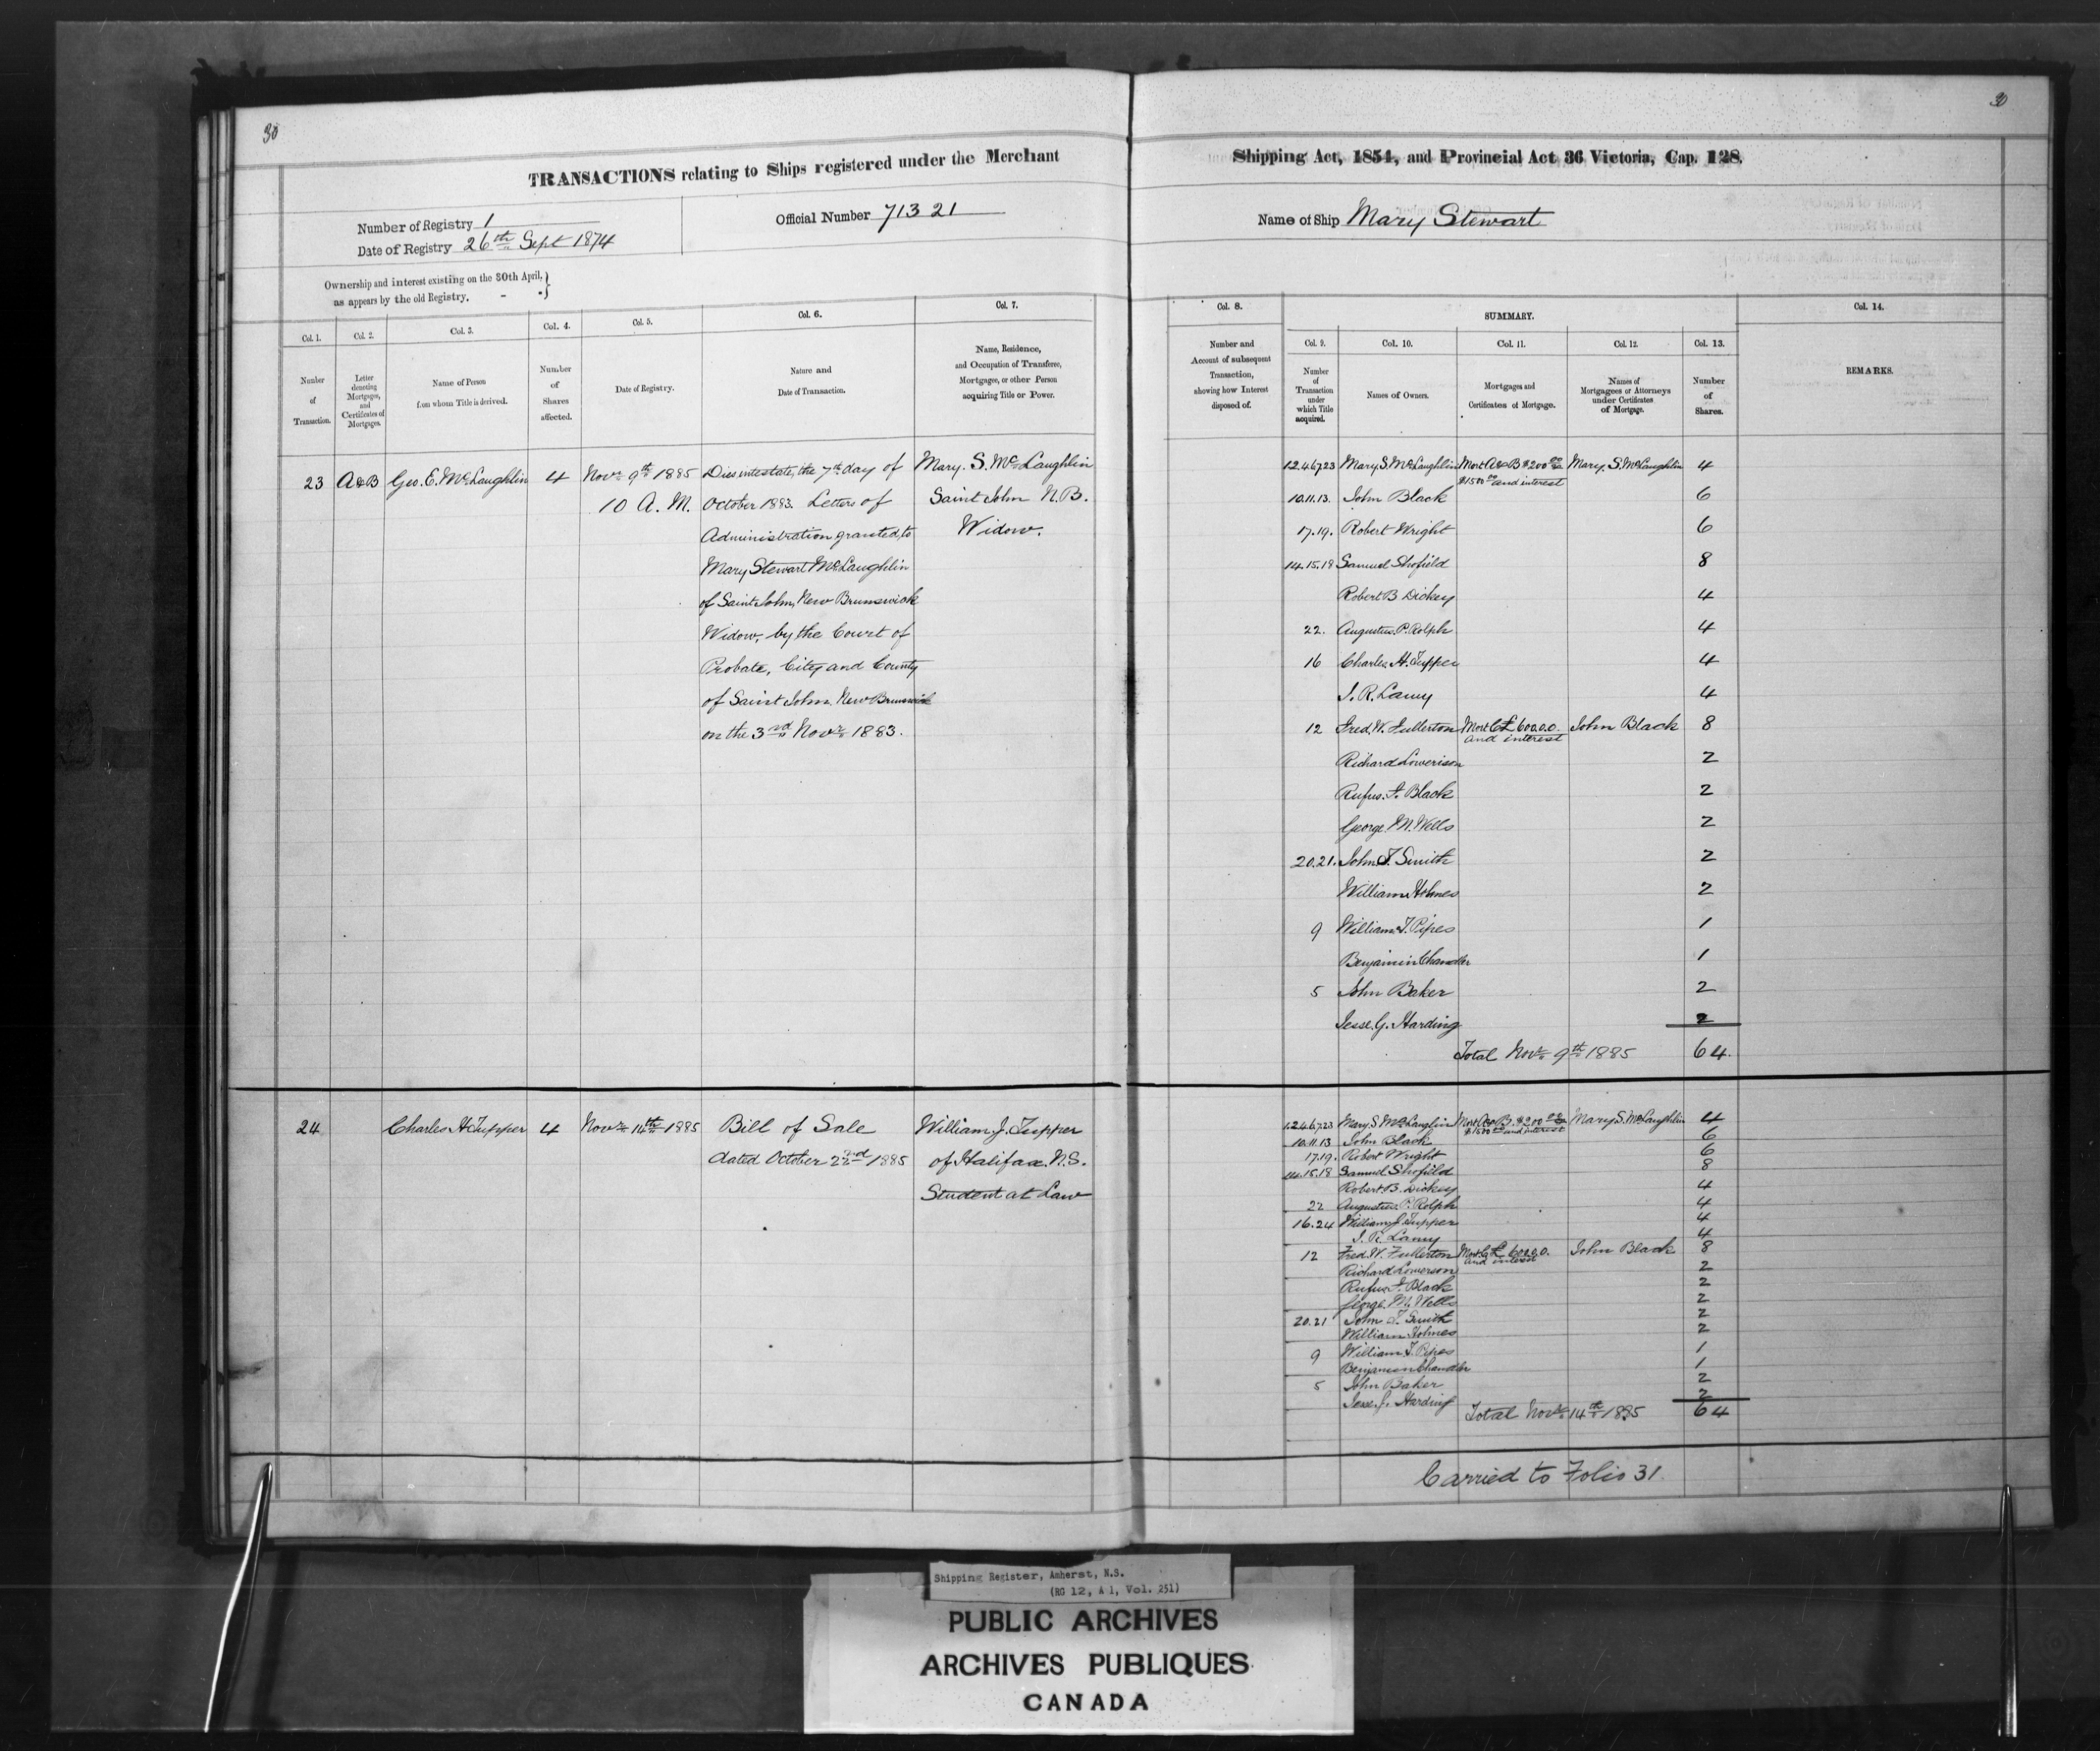 30
30
TRANSACTIONS relating to Ships registered under the Merchant
Shipping Act, 1854, and Provincial Act 36 Victoria, Cap. 128.
Number of Registry 1
Date of Registry 26th Sept 1874
Official Number 71321
Name of Ship Mary Stewart
Ownership and interest existing on the 30th April,
as appears by the old Registry. -
Col. 1.
Number
of
Transaction.
Col. 2.
Letter
denoting
Mortgages,
and
Certificates of
Mortgages.
Col. 3.
Name of Person
from whom Title is derived.
Col. 4.
Number
of
Shares
affected.
Col. 5.
Date of Registry.
Col. 6.
Nature and
Date of Transaction.
Col. 7.
Name, Residence,
and Occupation of Transferee,
Mortgagee, or other Person
acquiring Title or Power.
Col. 8.
Number and
Account of subsequent
Transaction,
showing how Interest
disposed of.
SUMMARY.
Col. 9.
Number
of
Transaction
under
which Title
acquired.
Col. 10.
Names of Owners.
Col. 11.
Mortgages and
Certificates of Mortgage.
Col. 12.
Names of
Mortgagees or Attorneys
under Certificates
of Mortgage.
Col. 13.
Number
of
Shares.
Col. 14.
REMARKS.
23 A&B Geo. E. McLaughlin 4
Novr 9th 1885
10 A. M.
Dies intestate, the 7th day of
October 1883. Letters of
Administration granted, to
Mary Stewart McLaughlin
of Saint John, New Brunswick
Widow, by the Court of
Probate, City and County
of Saint John New Brunswick
on the 3rd Novr 1883.
Mary. S. McLaughlin
Saint John N.B.
Widow.
1.2.4.6.7.23 Mary S. McLaughlin Mort A&B $200 00 Mary. S. McLaughlin 4
$1500 00 and interest
10.11.13. John Black 6
17.19. Robert Wright 6
14.15.18 Samuel Shofield 8
Robert B Dickey 4
22. Augustus. P. Rolph 4
16 Charles H. Tupper 4
J. R. Lamy 4
12 Fred. W. Fullerton Mort C £600.0.0. John Black 8
and interest
Richard Lowerison 2
Rufus. F. Black 2
George. M. Wells 2
20.21. John T. Smith 2
William Holmes 2
9 William T. Pipes 1
Benjamin Chandler 1
5 John Baker 2
Jesse. G. Harding 2
Total Novr 9th 1885 64.
24 Charles H Tupper 4 Novr 14th 1885
Bill of Sale
dated October 22nd 1885
William J. Tupper
of Halifax. N.S.
Student at Law
1.2.4.6.7.23 Mary S McLauglin Mort A&B. $200 00 Mary S. McLaughlin 4
$1500 00 and interest
10.11.13 John Black 6
17.19. Robert Wright 6
14.15.18 Samuel Shofield 8
Robert. B. Dickey 4
22 Augustus. P. Rolph 4
16.24 William J Tupper 4
J. R. Lamy 4
12 Fred. W. Fullerton Mort. C £600.0.0. John Black 8
and interest
Richard Lowerson 2
Rufus. F. Black 2
George. M. Wells 2
20.21 John T. Smith 2
William Holmes 2
9 William T. Pipes 1
Benjamin Chandler 1
5 John Baker 2
Jesse. G. Harding 2
Total Novr 14th 1885 64
Carried to Folio 31
Shipping Register, Amherst, N.S.
(RG 12, A 1, Vol. 251)
PUBLIC ARCHIVES
ARCHIVES PUBLIQUES
CANADA